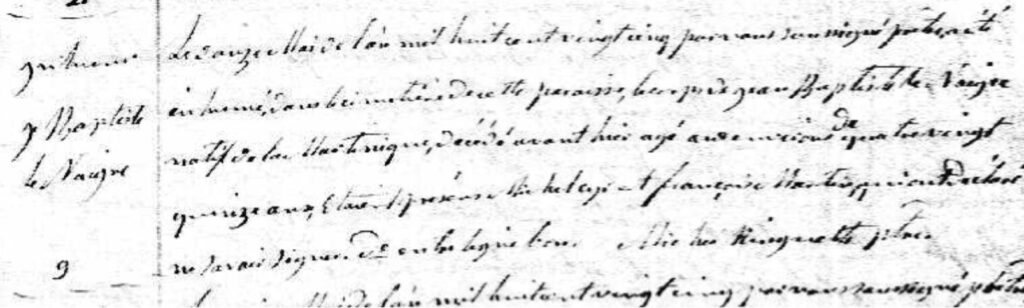 inhumé
Le onze Mai de l'an mil huit cent vingt cinq par nous soussigné prêtre a été
J Baptiste
inhumé, dans le cimetière de cette paroisse, le corps de Jean Baptiste le Naigre
le Naigre
natif de la Martinique, décédé avant hier agé environ de quatre vingt
quinze ans, Etaient présens Michel et françois Martin, qui ont déclaré
ne savoir signer. de en la ligne bon Ringuette ptre
9
Mai de l'an mil huit cent vingt cinq par nous soussigné